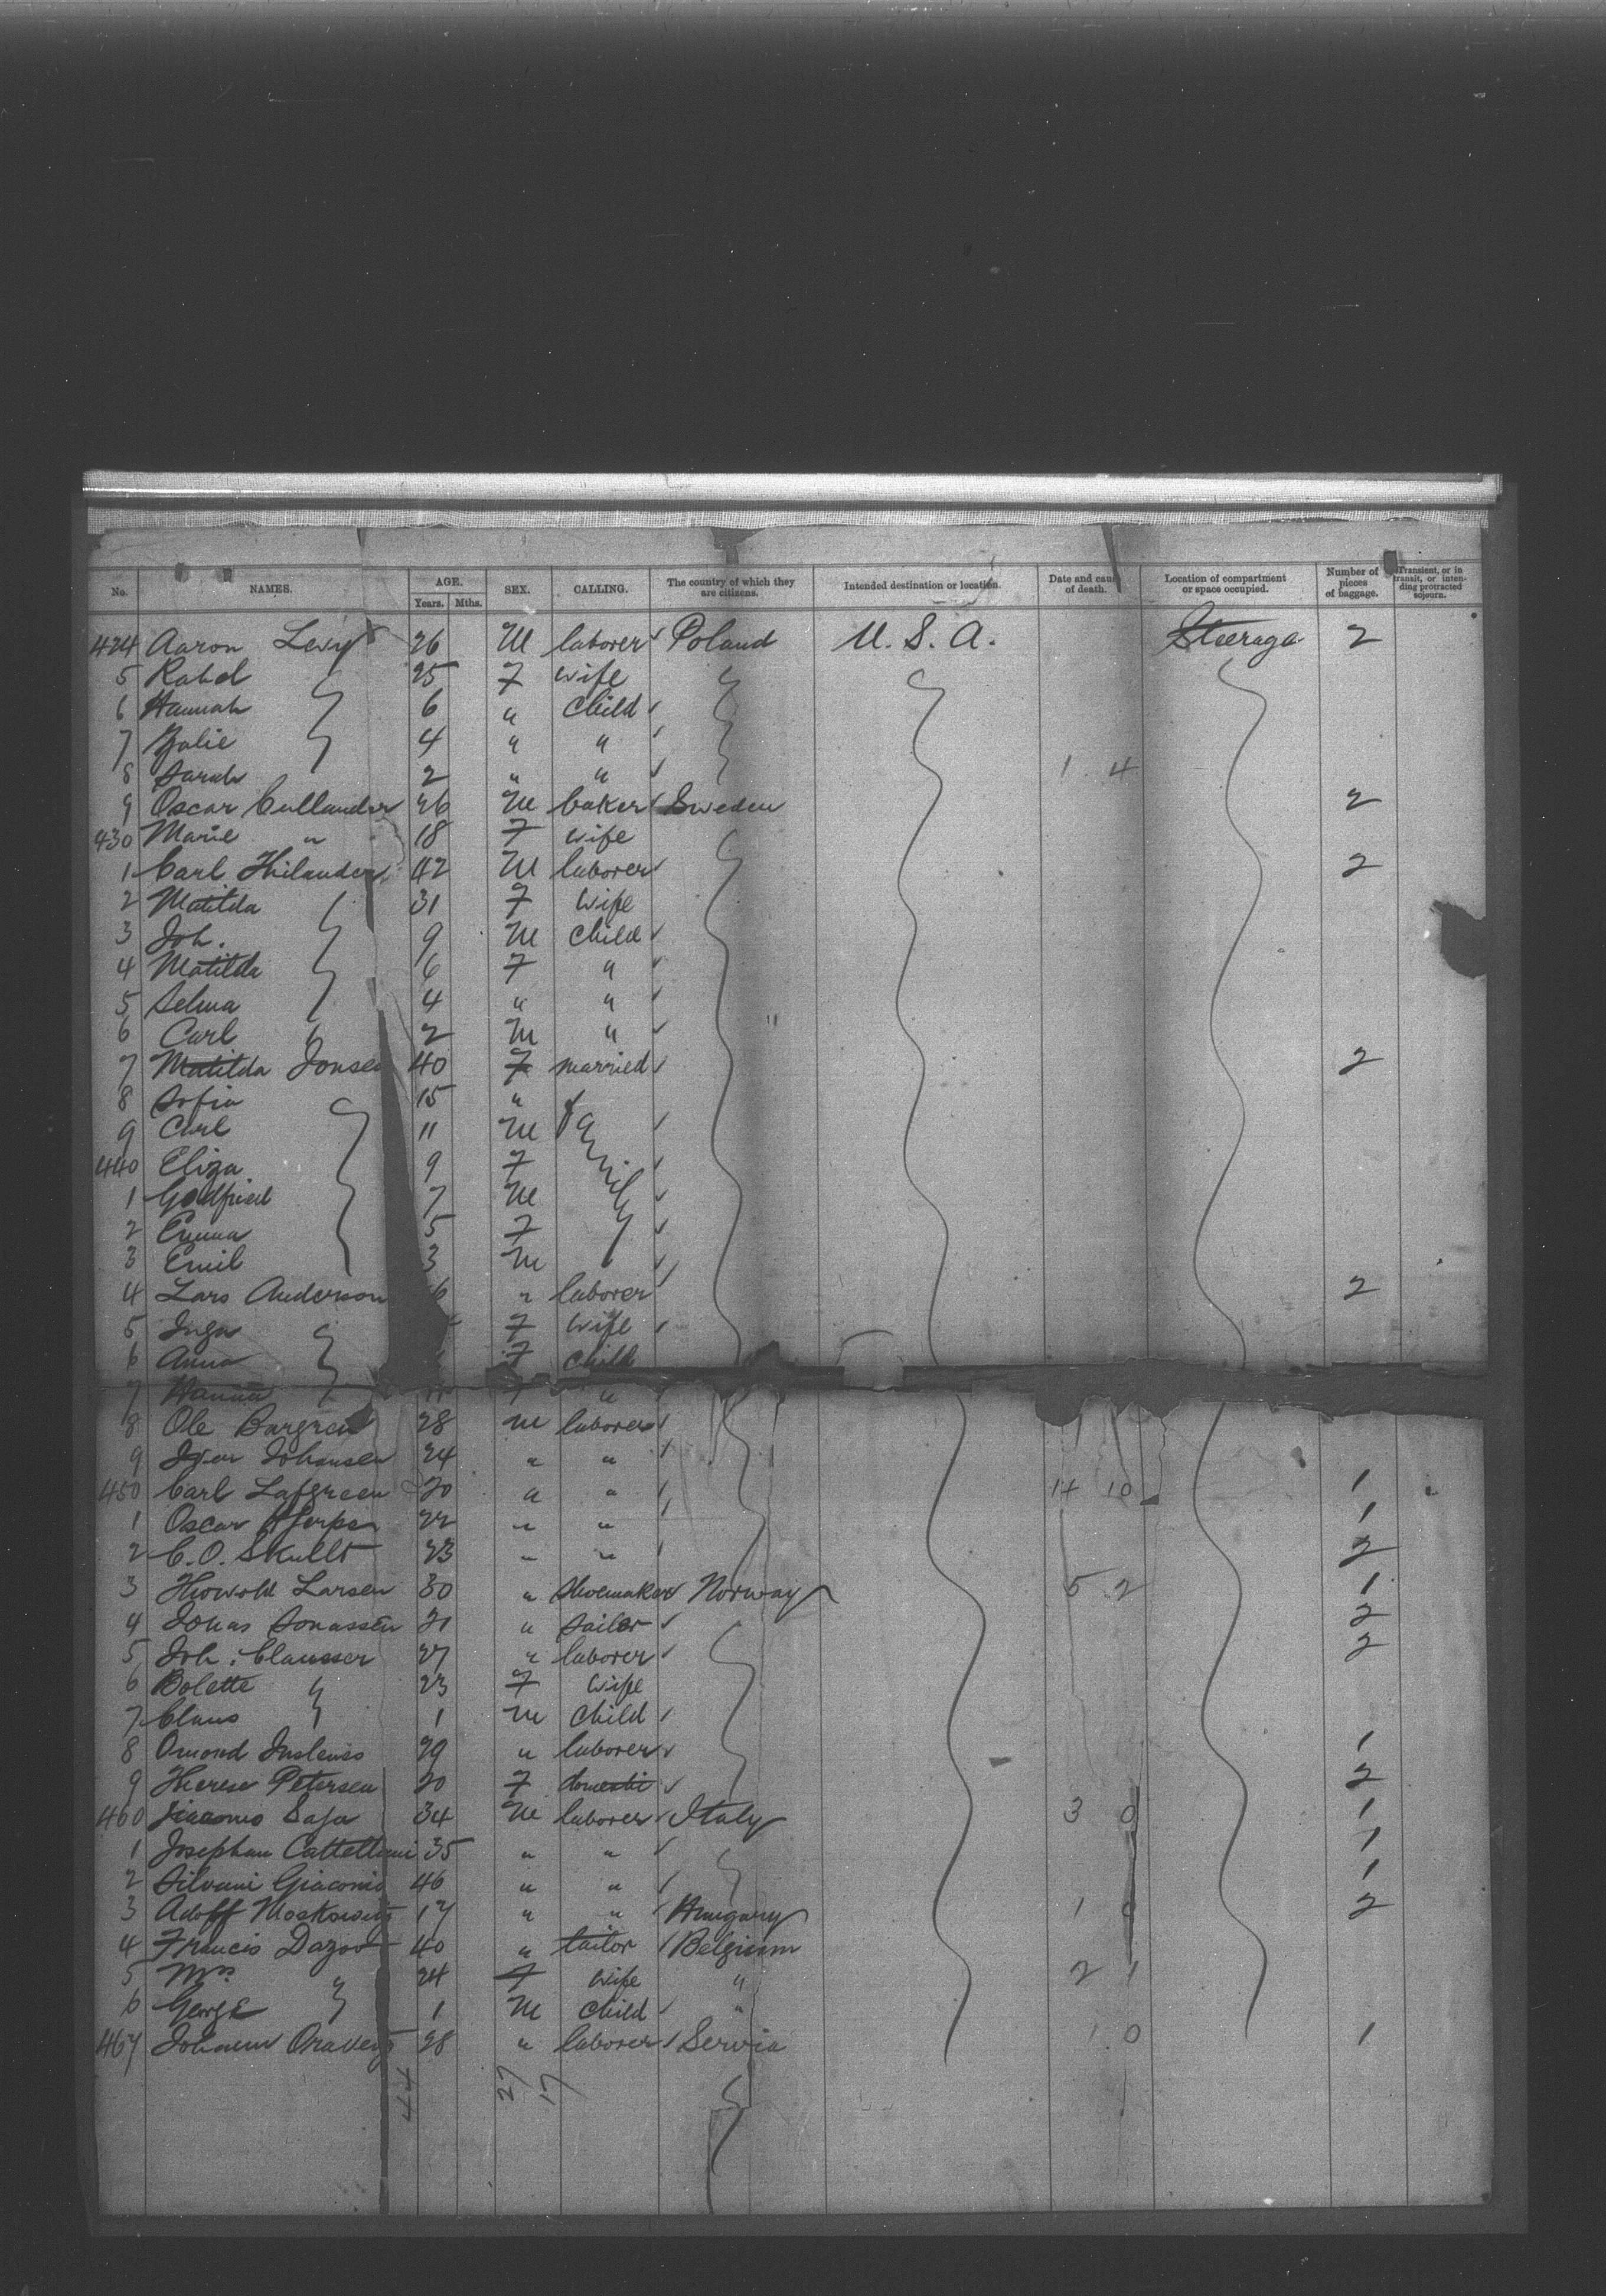 No. NAMES. AGE. Years. Mths. SEX. CALLING. The country of which they are citizens. Intended destination or location. Date and cause of death. Location of compartment or space occupied. Number of pieces of baggage. Transient, or in transit, or intending protracted sojourn.
424 Aaron Levy 26 M laborer Poland U. S. A. Steerage 2
5 Rahel 25 F wife
6 Hannah 6 " child
7 4 " "
8 Sarah 2 " " 1 4
9 Oscar Cullander 26 M baker Sweden 2
430 Marie " 18 F wife
1 Carl Thilander 42 M laborer 2
2 Matilda 31 F wife
3 Joh. 9 M child
4 Matilda 6 F "
5 Selma 4 " "
6 Carl 2 M "
7 Matilda Jonsen 40 F married 2
8 Sofia 15 " family
9 Carl 11 M
440 Eliza 9 F
1 Godfried 7 M
2 Emma 5 F
3 Emil 3 M
4 Lars Anderson 6 " laborer 2
5 Inga F wife
6 Anna F child
7 Hanna "
8 Ole 28 M laborer
9 Johansen 24 " "
450 Carl Lafgreen 20 " " 14 10 1
1 Oscar 22 " " 1
2 C. O. Skullt 23 " " 2
3 Larsen 30 " shoemaker Norway 5 2 1
4 Jonas Jonassen 21 " sailor 2
5 Joh. Claussen 27 " laborer 2
6 Bolette 23 F wife
7 Claus 1 M child
8 Omond 29 " laborer 1
9 Therese Petersen 20 F domestic 2
460 Giacomo 34 M laborer Italy 3 0 1
1 35 " " 1
2 Silvani Giacomo 46 " " 1
3 Adolf Moskowitz 17 " " Hungary 1 0 2
4 Francis 40 " tailor Belgium
5 Mrs " 24 F wife " 2 1
6 George " 1 M child "
467 Johann 28 " laborer Servia 1 0 1
44 27 17